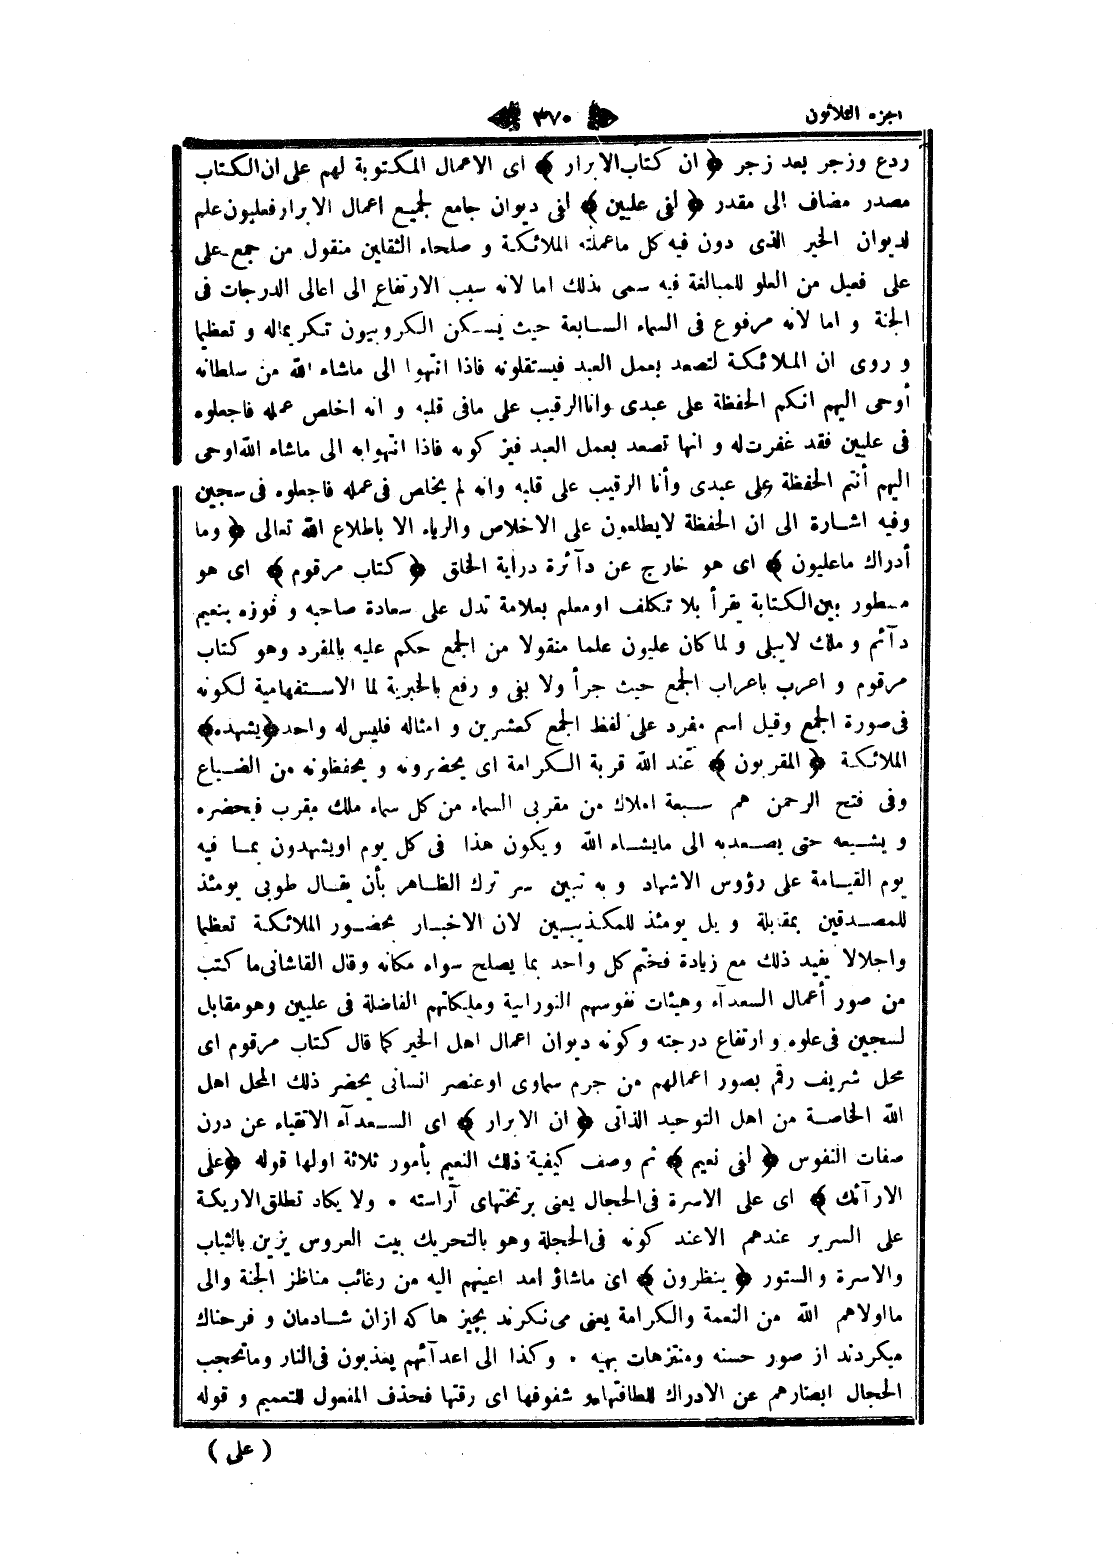 الجزء الثلاثون ٣٧٠
ردع وزجر بعد زجر ﴿ ان كتاب الابرار ﴾ اى الاعمال المكتوبة لهم على ان الكتاب
مصدر مضاف الى مقدر ﴿ لفى عليين ﴾ لفى ديوان جامع لجميع اعمال الابرار فعليون علم
لديوان الخير الذى دون فيه كل ماعملته الملائكة و صلحاء الثقلين منقول من جمع على
على فعيل من العلو للمبالغة فيه سمى بذلك اما لانه سبب الارتفاع الى اعالى الدرجات فى
الجنة و اما لانه مرفوع فى السماء السابعة حيث يسكن الكروبيون تكريماله و تعظيما
و روى ان الملائكة لتصعد بعمل العبد فيستقلونه فاذا انتهوا الى ماشاء الله من سلطانه
أوحى اليهم انكم الحفظة على عبدى واناالرقيب على مافى قلبه و انه اخلص عمله فاجعلوه
فى عليين فقد غفرت له و انها تصعد بعمل العبد فيزكونه فاذا انتهوابه الى ماشاء الله اوحى
اليهم أنتم الحفظة على عبدى وأنا الرقيب على قلبه وانه لم يخلص فى عمله فاجعلوه فى سجين
وفيه اشارة الى ان الحفظة لايطلعون على الاخلاص والرياء الا باطلاع الله تعالى ﴿ وما
أدراك ماعليون ﴾ اى هو خارج عن دآئرة دراية الخلق ﴿ كتاب مرقوم ﴾ اى هو
مسطور بين الكتابة يقرأ بلا تكلف اومعلم بعلامة تدل على سعادة صاحبه و فوزه بنعيم
دآئم و ملك لايبلى و لماكان عليون علما منقولا من الجمع حكم عليه بالمفرد وهو كتاب
مرقوم و اعرب باعراب الجمع حيث جرأ ولا بنى و رفع بالخبرية لما الاستفهامية لكونه
فى صورة الجمع وقيل اسم مفرد على لفظ الجمع كعشرين و امثاله فليس له واحد ﴿ يشهده ﴾
الملائكة ﴿ المقربون ﴾ عند الله قربة الكرامة اى يحضرونه و يحفظونه من الضياع
وفى فتح الرحمن هم سبعة املاك من مقربى السماء من كل سماء ملك مقرب فيحضره
و يشيعه حتى يصعد به الى مايشاء الله ويكون هذا فى كل يوم اويشهدون بما فيه
يوم القيامة على رؤوس الاشهاد و به تبين سر ترك الظاهر بأن يقال طوبى يومئذ
للمصدقين بمقابلة و يل يومئذ للمكذبين لان الاخبار بحضور الملائكة تعظيما
واجلالا يفيد ذلك مع زيادة فختم كل واحد بما يصلح سواء مكانه وقال القاشانى ما كتب
من صور أعمال السعدآء وهيئات نفوسهم النورانية وملكاتهم الفاضلة فى عليين وهو مقابل
لسجين فى علوه و ارتفاع درجته وكونه ديوان اعمال اهل الخير كما قال كتاب مرقوم اى
محل شريف رقم بصور اعمالهم من جرم سماوى اوعنصر انسانى يحضر ذلك المحل اهل
الله الخاصة من اهل التوحيد الذاتى ﴿ ان الابرار ﴾ اى السعدآء الاتقياء عن درن
صفات النفوس ﴿ لفى نعيم ﴾ ثم وصف كيفية ذلك النعيم بأمور ثلاثة اولها قوله ﴿ على
الارآئك ﴾ اى على الاسرة فى الحجال يعنى برتختهاى آراسته . ولا يكاد تطلق الاريكة
على السرير عندهم الاعند كونه فى الحجلة وهو بالتحريك بيت العروس يزين بالثياب
والاسرة والستور ﴿ ينظرون ﴾ اى ماشاؤ امد اعينهم اليه من رغائب مناظر الجنة والى
مااولاهم الله من النعمة والكرامة يعنى مى‌نكرند بچيز ها كه ازان شادمان و فرحناك
ميكردند از صور حسنه ومنتزهات بهيه . وكذا الى اعدآئهم يعذبون فى النار وماتحجب
الحجال ابصارهم عن الادراك للطافتها و شفوفها اى رقتها فحذف المفعول للتعميم و قوله
( على )